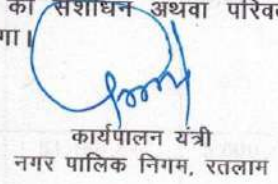 का संशोधन अथवा परिव
गा।
कार्यपालन यंत्री
नगर पालिक निगम, रतलाम